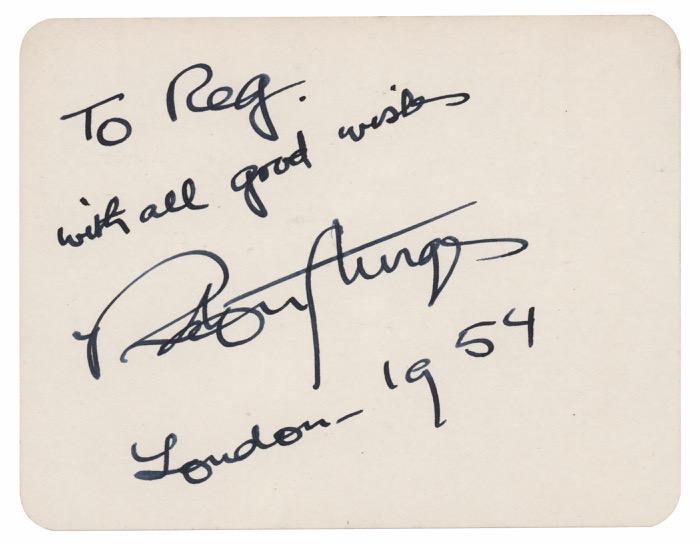 To Reg.
with all good wishes
Preston Sturges
London - 1954